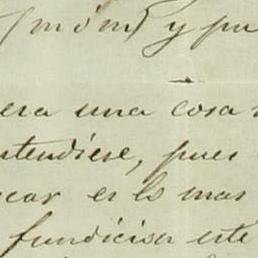 y pu
era una cosa
ntendiese, pues
car es lo mas
fundicion este